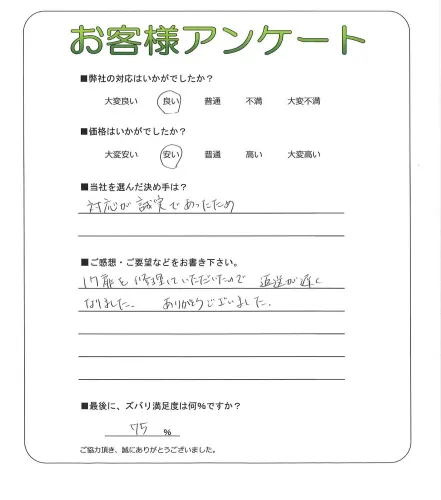 お客様アンケート
■弊社の対応はいかがでしたか?
大変良い 良い 普通 不満 大変不満
■価格はいかがでしたか?
大変安い 安い 普通 高い 大変高い
■当社を選んだ決め手は?
対応が誠実であったため
■ご感想・ご要望などをお書き下さい。
修理していただいたので 返送が遅く
なりました. ありがとうございました.
■最後に、ズバリ満足度は何%ですか?
75 %
ご協力頂き、誠にありがとうございました。